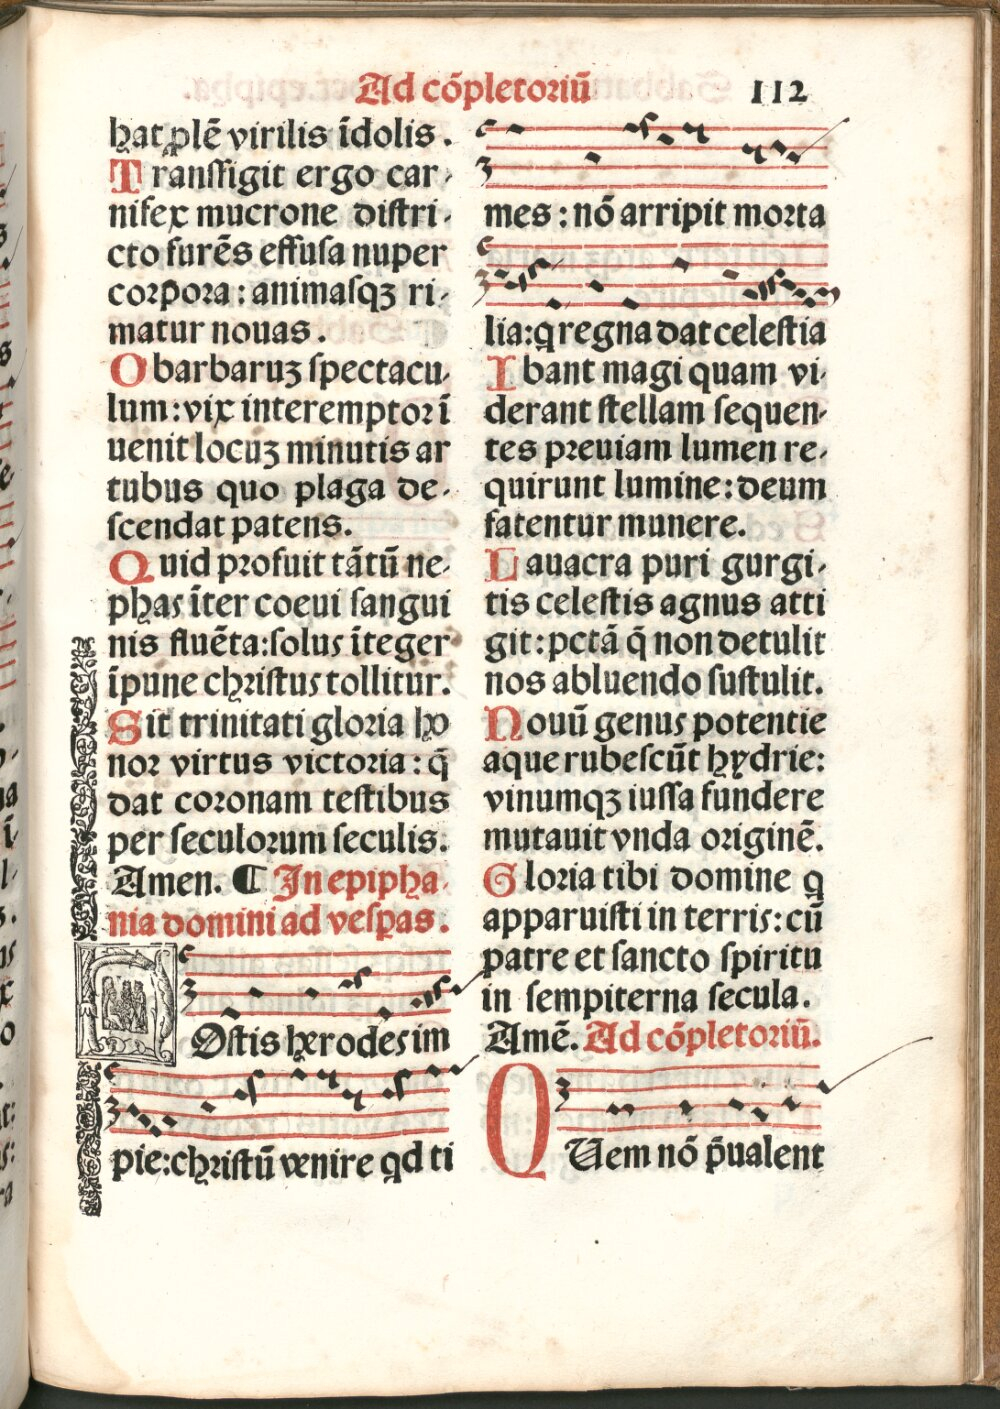 Ad cõpletoriũ 112
bat plẽ virilis ĩdolis.
Transfigit ergo car-
nifex mucrone distri-
cto furẽs effusa nuper
corpora: animasqꝫ ri-
matur nouas.
O barbaruꝫ spectacu-
lum: vix interemptor ĩ
uenit locuꝫ minutis ar
tubus quo plaga de-
scendat patens.
Quid profuit tãtũ ne-
phas ĩter coeui sangui
nis fluẽta: solus ĩteger
ĩpune christus tollitur.
Sit trinitati gloria ho
nor virtus victoria: q̃
dat coronam testibus
per seculorum seculis.
Amen. ¶ In epipha-
nia domini ad vesꝑas.
HOstis herodes im
pie: christũ venire qd ti
mes: nõ arripit morta
lia: q regna dat celestia
Ibant magi quam vi-
derant stellam sequen-
tes preuiam lumen re-
quirunt lumine: deum
fatentur munere.
Lauacra puri gurgi-
tis celestis agnus atti
git: pctã q̃ non detulit
nos abluendo sustulit.
Nouũ genus potentie
aque rubescũt hydrie:
vinumqꝫ iussa fundere
mutauit vnda originẽ.
Gloria tibi domine q
apparuisti in terris: cũ
patre et sancto spiritu
in sempiterna secula.
Amẽ. Ad cõpletoriũ.
QUem nõ p̃ualent